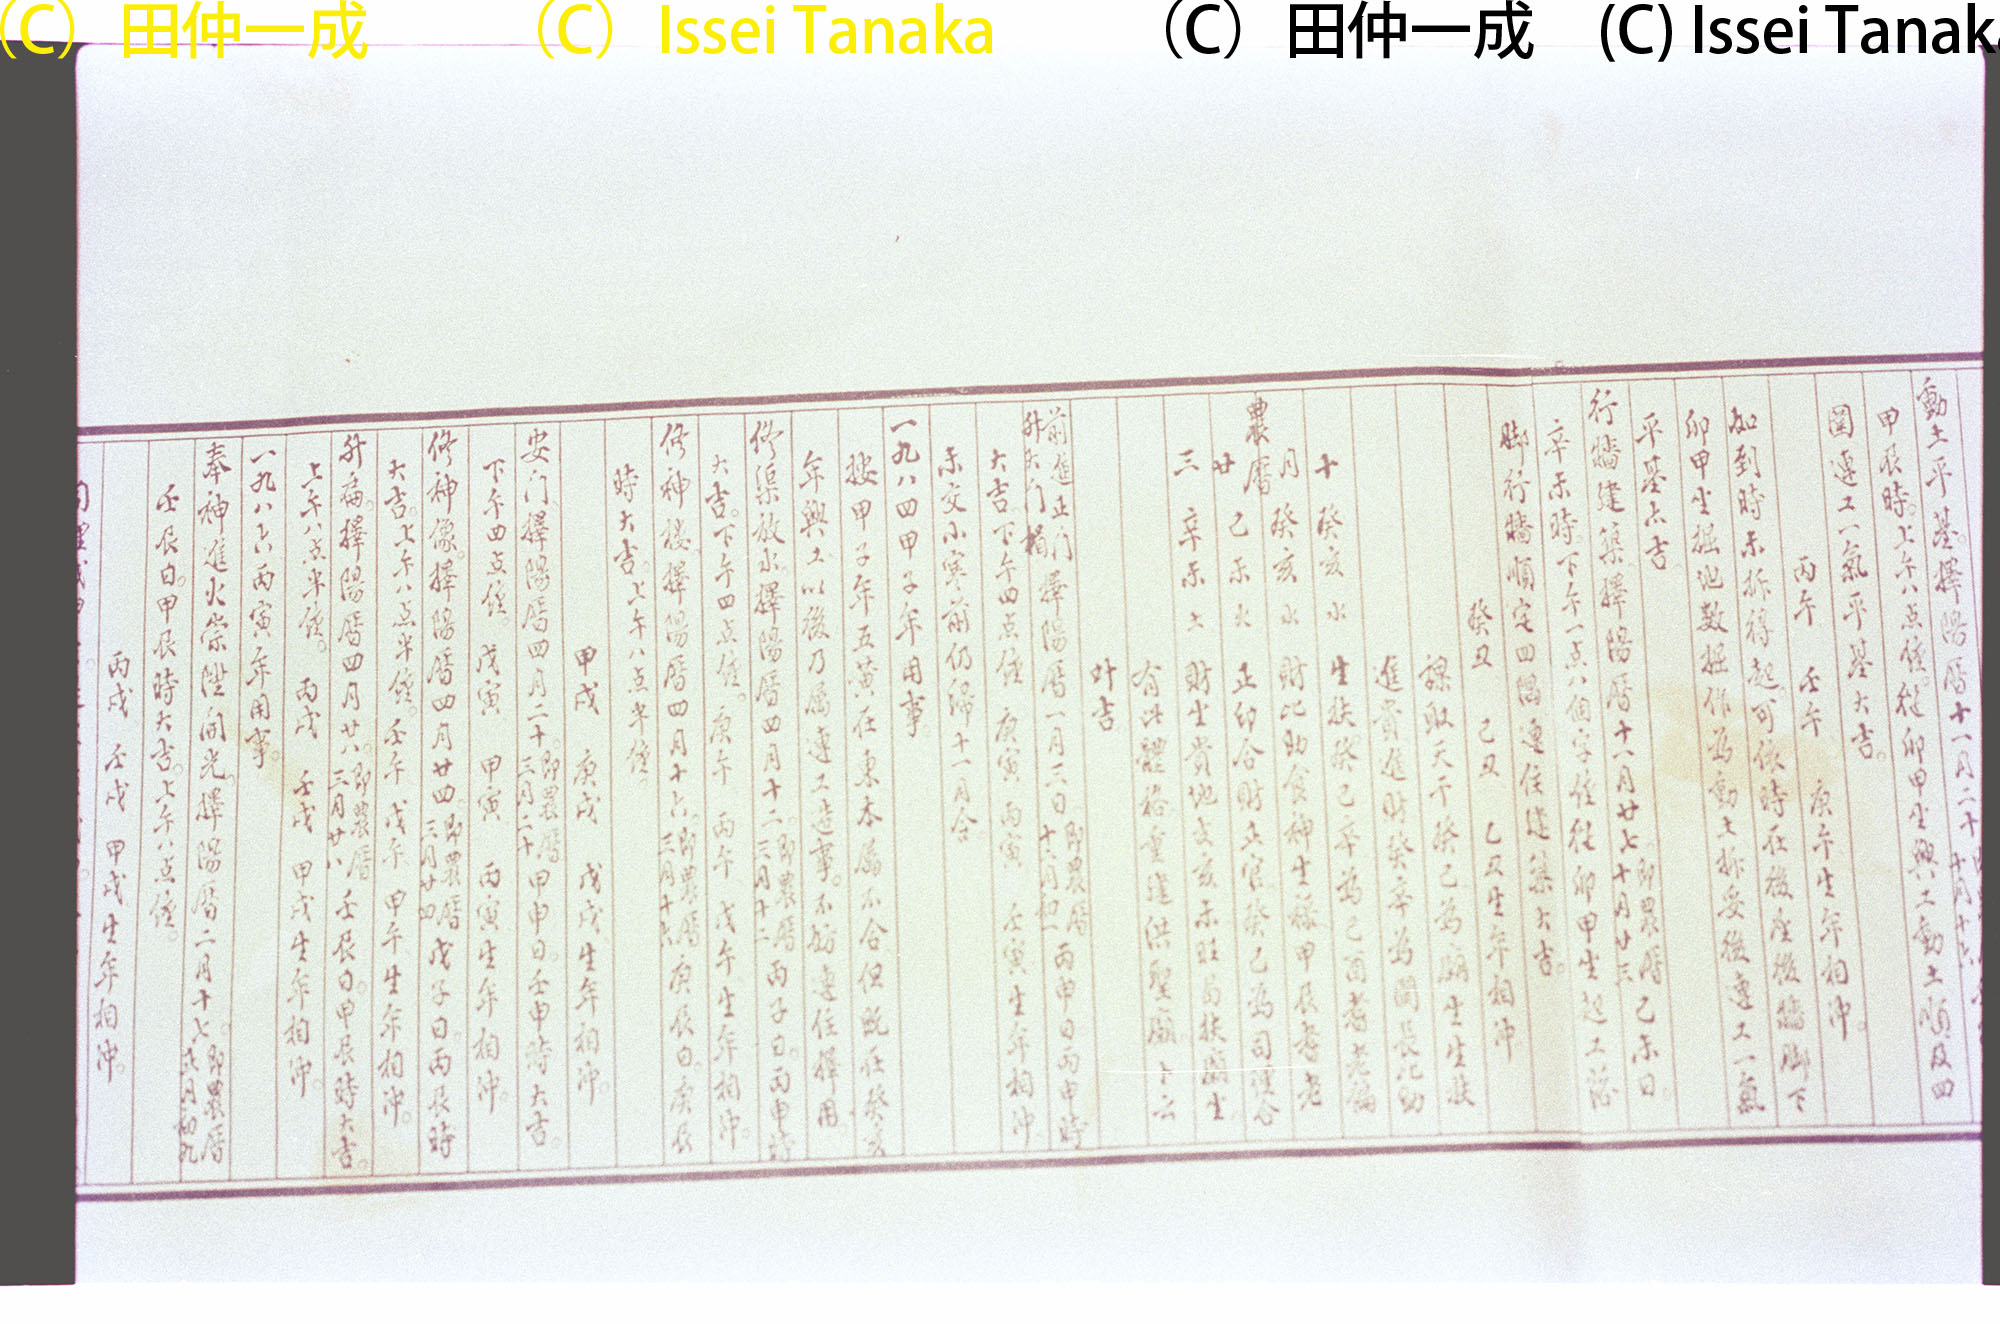 (C) 田仲一成 (C) Issei Tanaka (C) 田仲一成 (C) Issei Tanaka
動土平基。擇陽曆十一月二十 十月十六
甲辰時。上午八点鐘。從卯甲坐興工動土順及四
圍連工一氣平基大吉。
丙午 壬午 庚午生年相沖。
如到時未拆得起。可依時在後座後牆脚下
卯甲坐掘地數掘作為動土拆妥後連工一氣
平基亦吉。
行牆建築。擇陽曆十一月廿七即農曆十月廿三己未日。
辛未時。下午一点八個字鐘從卯甲坐起工落
脚行牆順定四隅連住建築大吉。
癸丑 己丑 乙丑生年相沖
課取天干癸己為廟生生扶
進貴進財癸辛為闔長比助
十 癸亥水 生扶癸己辛為己酉耆老福
月 癸亥水 財比助食神生祿甲辰耆老
農曆 廿 己未火 正印合財正官癸己為司理合
三 辛未土 財生貴地支亥未旺局扶廟坐
有此體格重建洪聖廟上云
叶吉
前進正门升大门楣 擇陽曆一月三日。即農曆十二月初一 丙申日丙申時
大吉。下午四点鐘 庚寅 丙寅 壬寅生年相沖
未交小寒前仍歸十一月合。
一九八四甲子年用事。
按甲子年五黃在東本屬不合。但既在癸亥
年興工以後乃屬連工造事。不妨連住擇用。
修渠放水。擇陽曆四月十二。即農曆三月十二 丙子日。丙申時
大吉。下午四点鐘。庚午 丙午 戊午生年相沖。
修神樓。擇陽曆四月十六。即農曆三月十六 庚辰日。庚辰
時大吉。上午八点半鐘。
甲戌 庚戌 戊戌生年相沖。
安门。擇陽曆四月二十。即農曆三月二十 甲申日。壬申時大吉。
下午四点鐘。戊寅 甲寅 丙寅生年相沖。
修神像。擇陽曆四月廿四。即農曆三月廿四 戊子日。丙辰時
大吉。上午八点半鐘。壬午 戊午 甲午生年相沖。
升扁。擇陽曆四月廿八。即農曆三月廿八 壬辰日。甲辰時大吉。
上午八点半鐘。丙戌 壬戌 甲戌生年相沖。
一九八六丙寅年用事。
奉神進火崇陞開光。擇陽曆二月十七。即農曆正月初九
壬辰日。甲辰時大吉。上午八点鐘。
丙戌 壬戌 甲戌生年相沖。